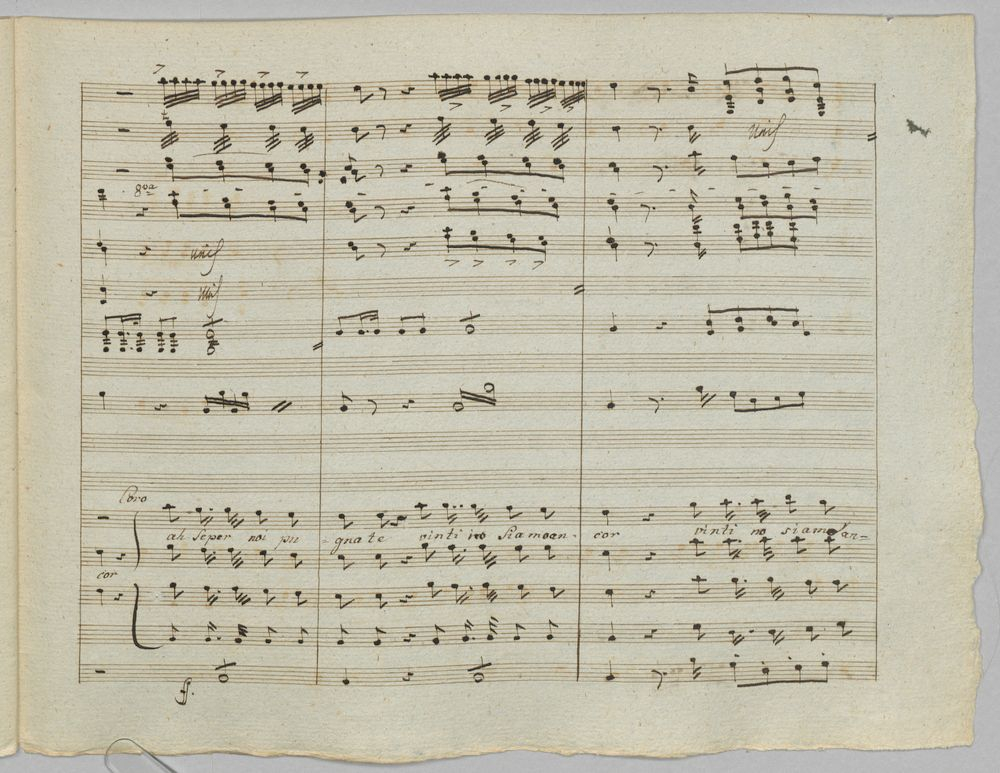 unis
8va
unis
unis
Coro
ah se per noi pu = gnate vinti no siamo an - cor vinti no siamo an=
cor
f.